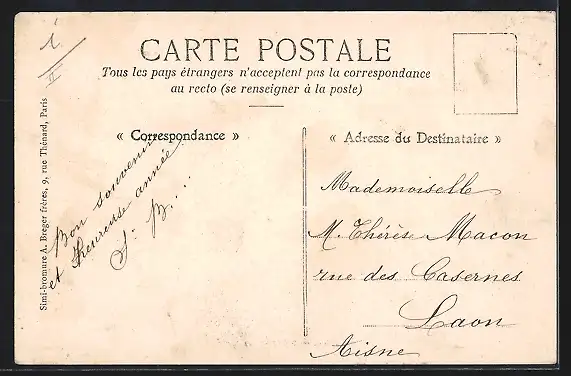 CARTE POSTALE
Tous les pays étrangers n'acceptent pas la correspondance
au recto (se renseigner à la poste)
« Correspondance »
Bon souvenir
et heureuse année
S. B....
« Adresse du Destinataire »
Mademoiselle
M. Thérèse Macon
rue des Casernes
Laon
Aisne
Simi-bromure A. Breger frères, 9, rue Thénard, Paris